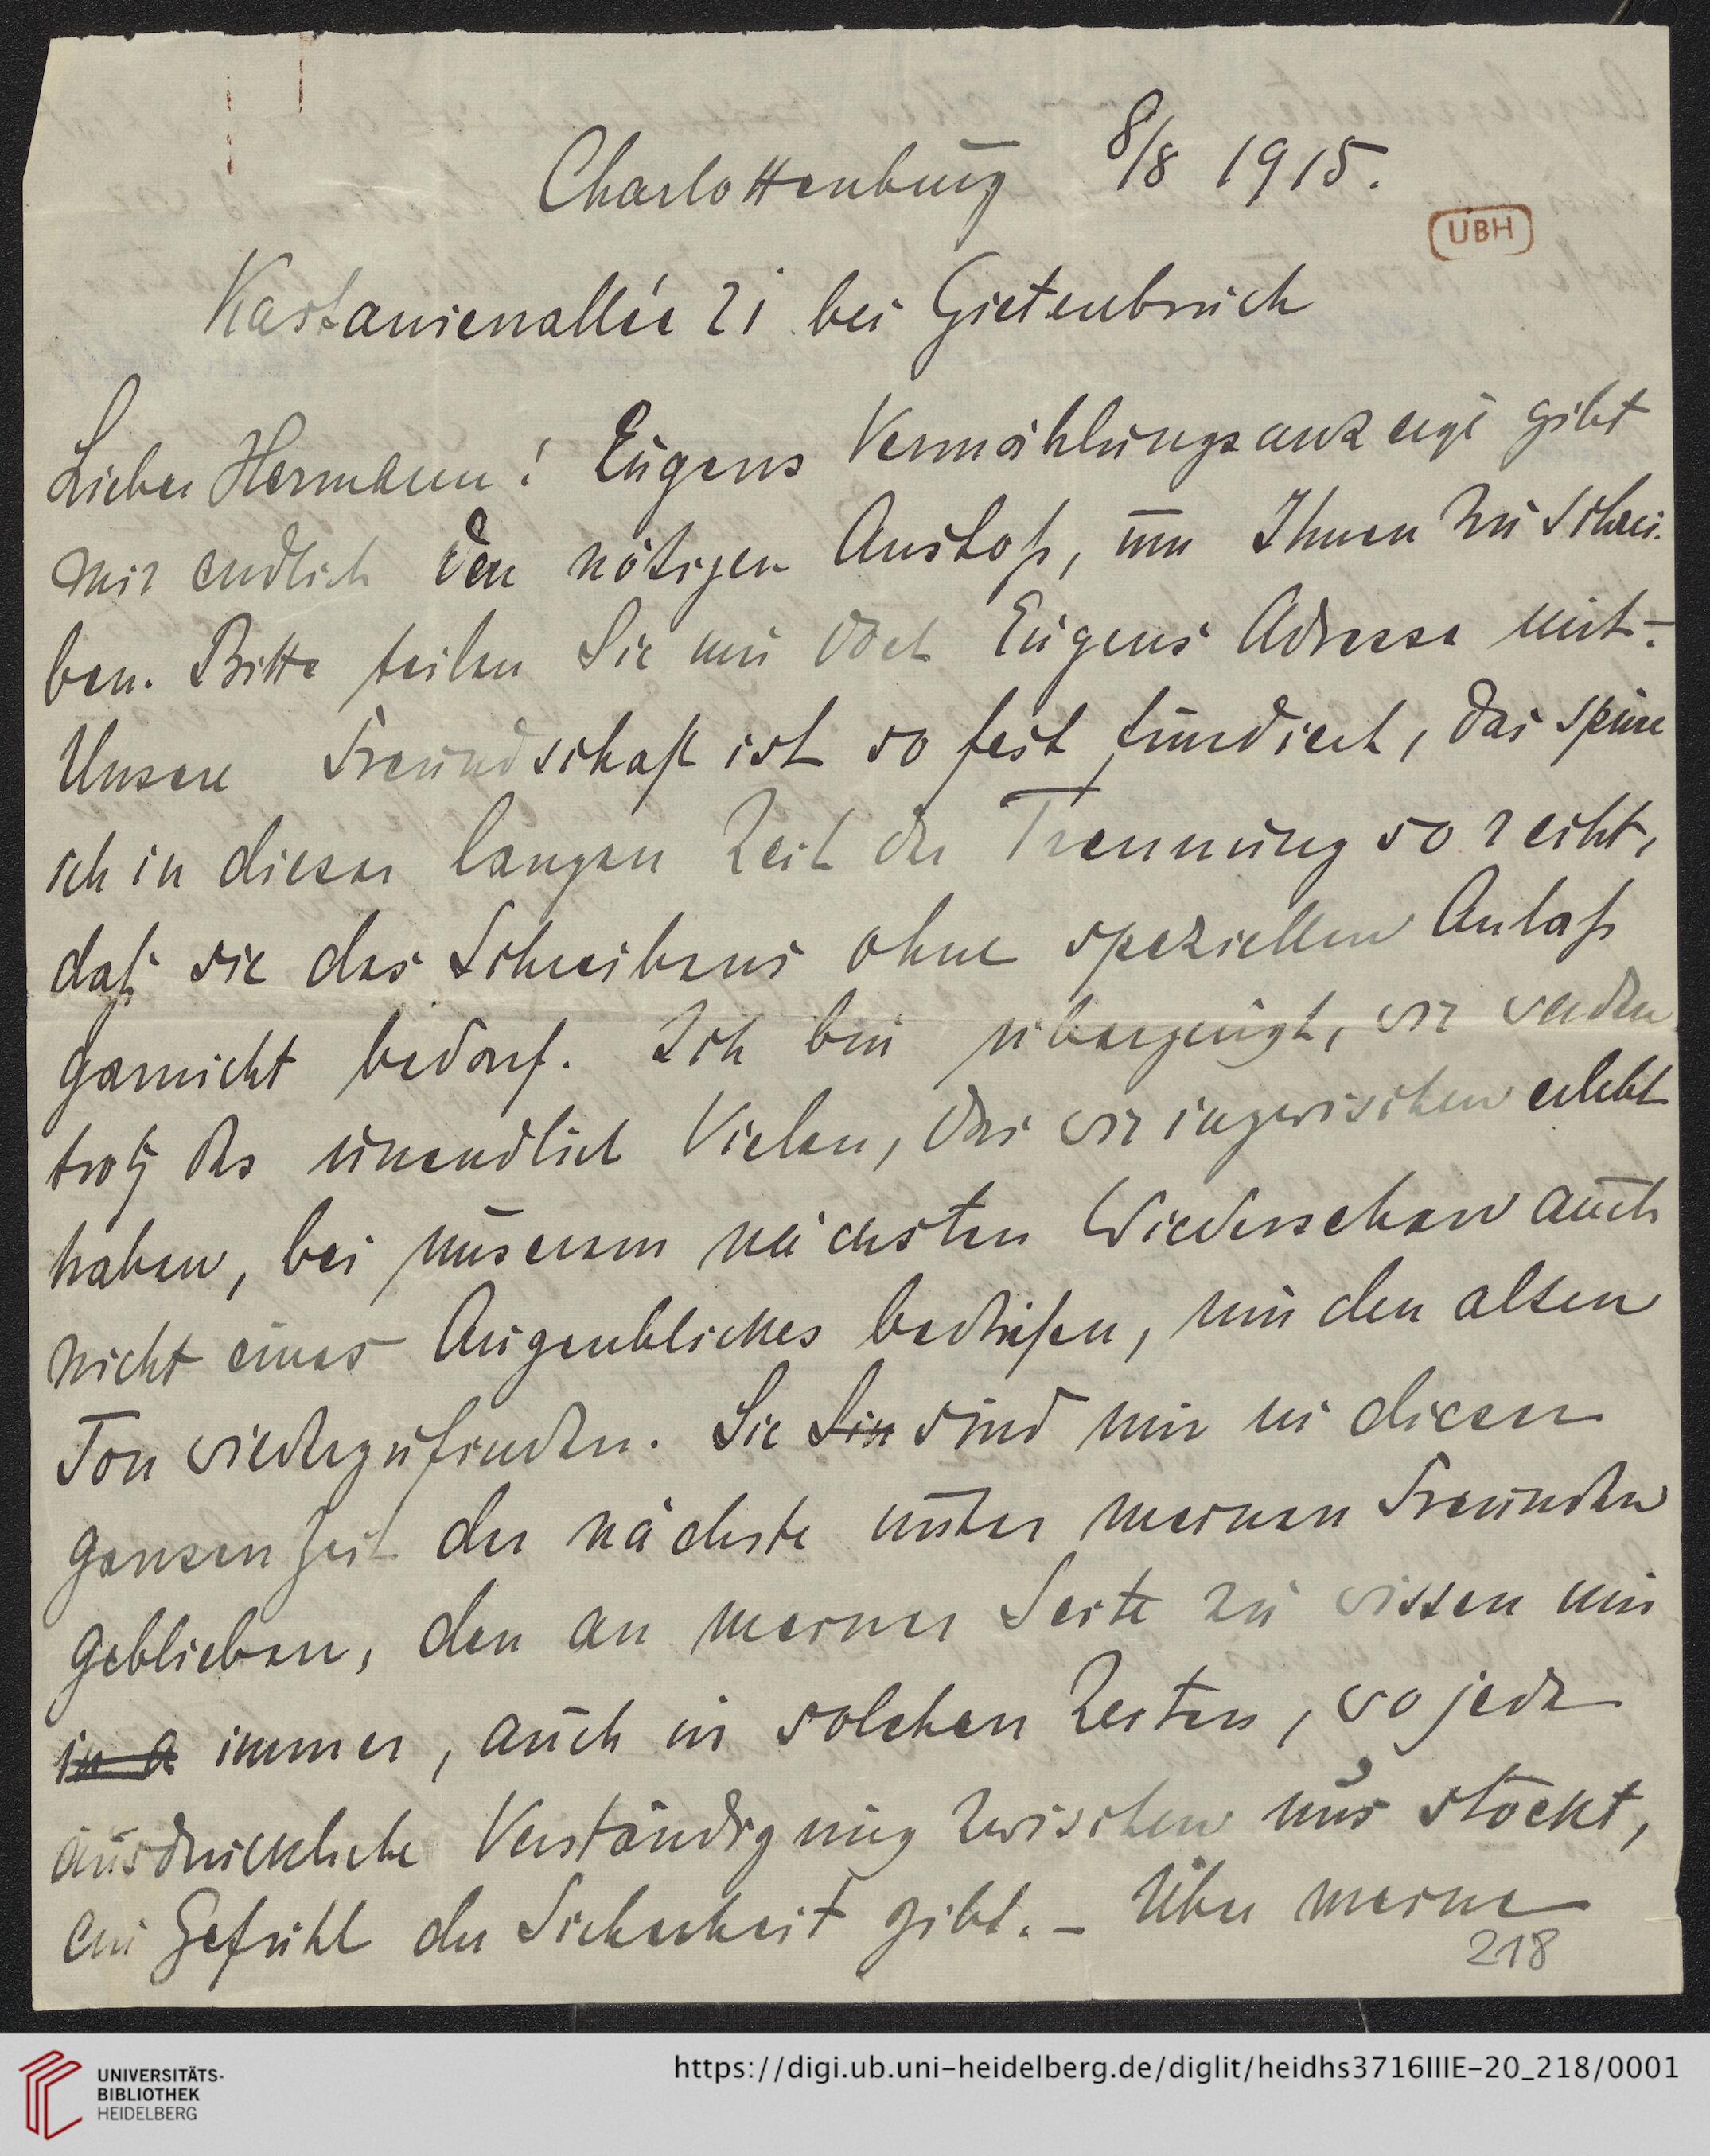 Charlottenburg 8/8 1915.
UBH
Kastanienallée 21 bei Gietenbruch
Lieber Hermann! Eugens Vermählungsanzeige gibt
mir endlich den nötigen Anstoß, um Ihnen zu schrei-
ben. Bitte teilen Sie mir doch Eugens Adresse mit. –
Unsere Freundschaft ist so fest fundiert, das spüre
ich in dieser langen Zeit der Trennung so recht,
daß sie des Schreibens ohne speziellen Anlaß
garnicht bedarf. Ich bin überzeugt, wir werden
trotz des unendlich Vielen, das wir inzwischen erlebt
haben, bei unserem nächsten Wiedersehen auch
nicht eines Augenblickes bedürfen, um den alten
Ton wiederzufinden. Sie Sin sind mir in dieser
ganzen Zeit der nächste unter meinen Freunden
geblieben, den an meiner Seite zu wissen mir
in a immer, auch in solchen Zeiten, wo jede
ausdrückliche Verständigung zwischen uns stockt,
ein Gefühl der Sicherheit gibt. – Über meine
218
UNIVERSITÄTS-
BIBLIOTHEK
HEIDELBERG
https://digi.ub.uni-heidelberg.de/diglit/heidhs3716IIIE-20_218/0001